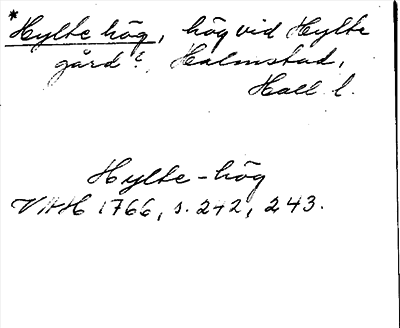 * Hylte hög, hög vid Hylte
gård?, Halmstad,
Hall. l.
Hylte-hög
VAH 1766, s. 242, 243.